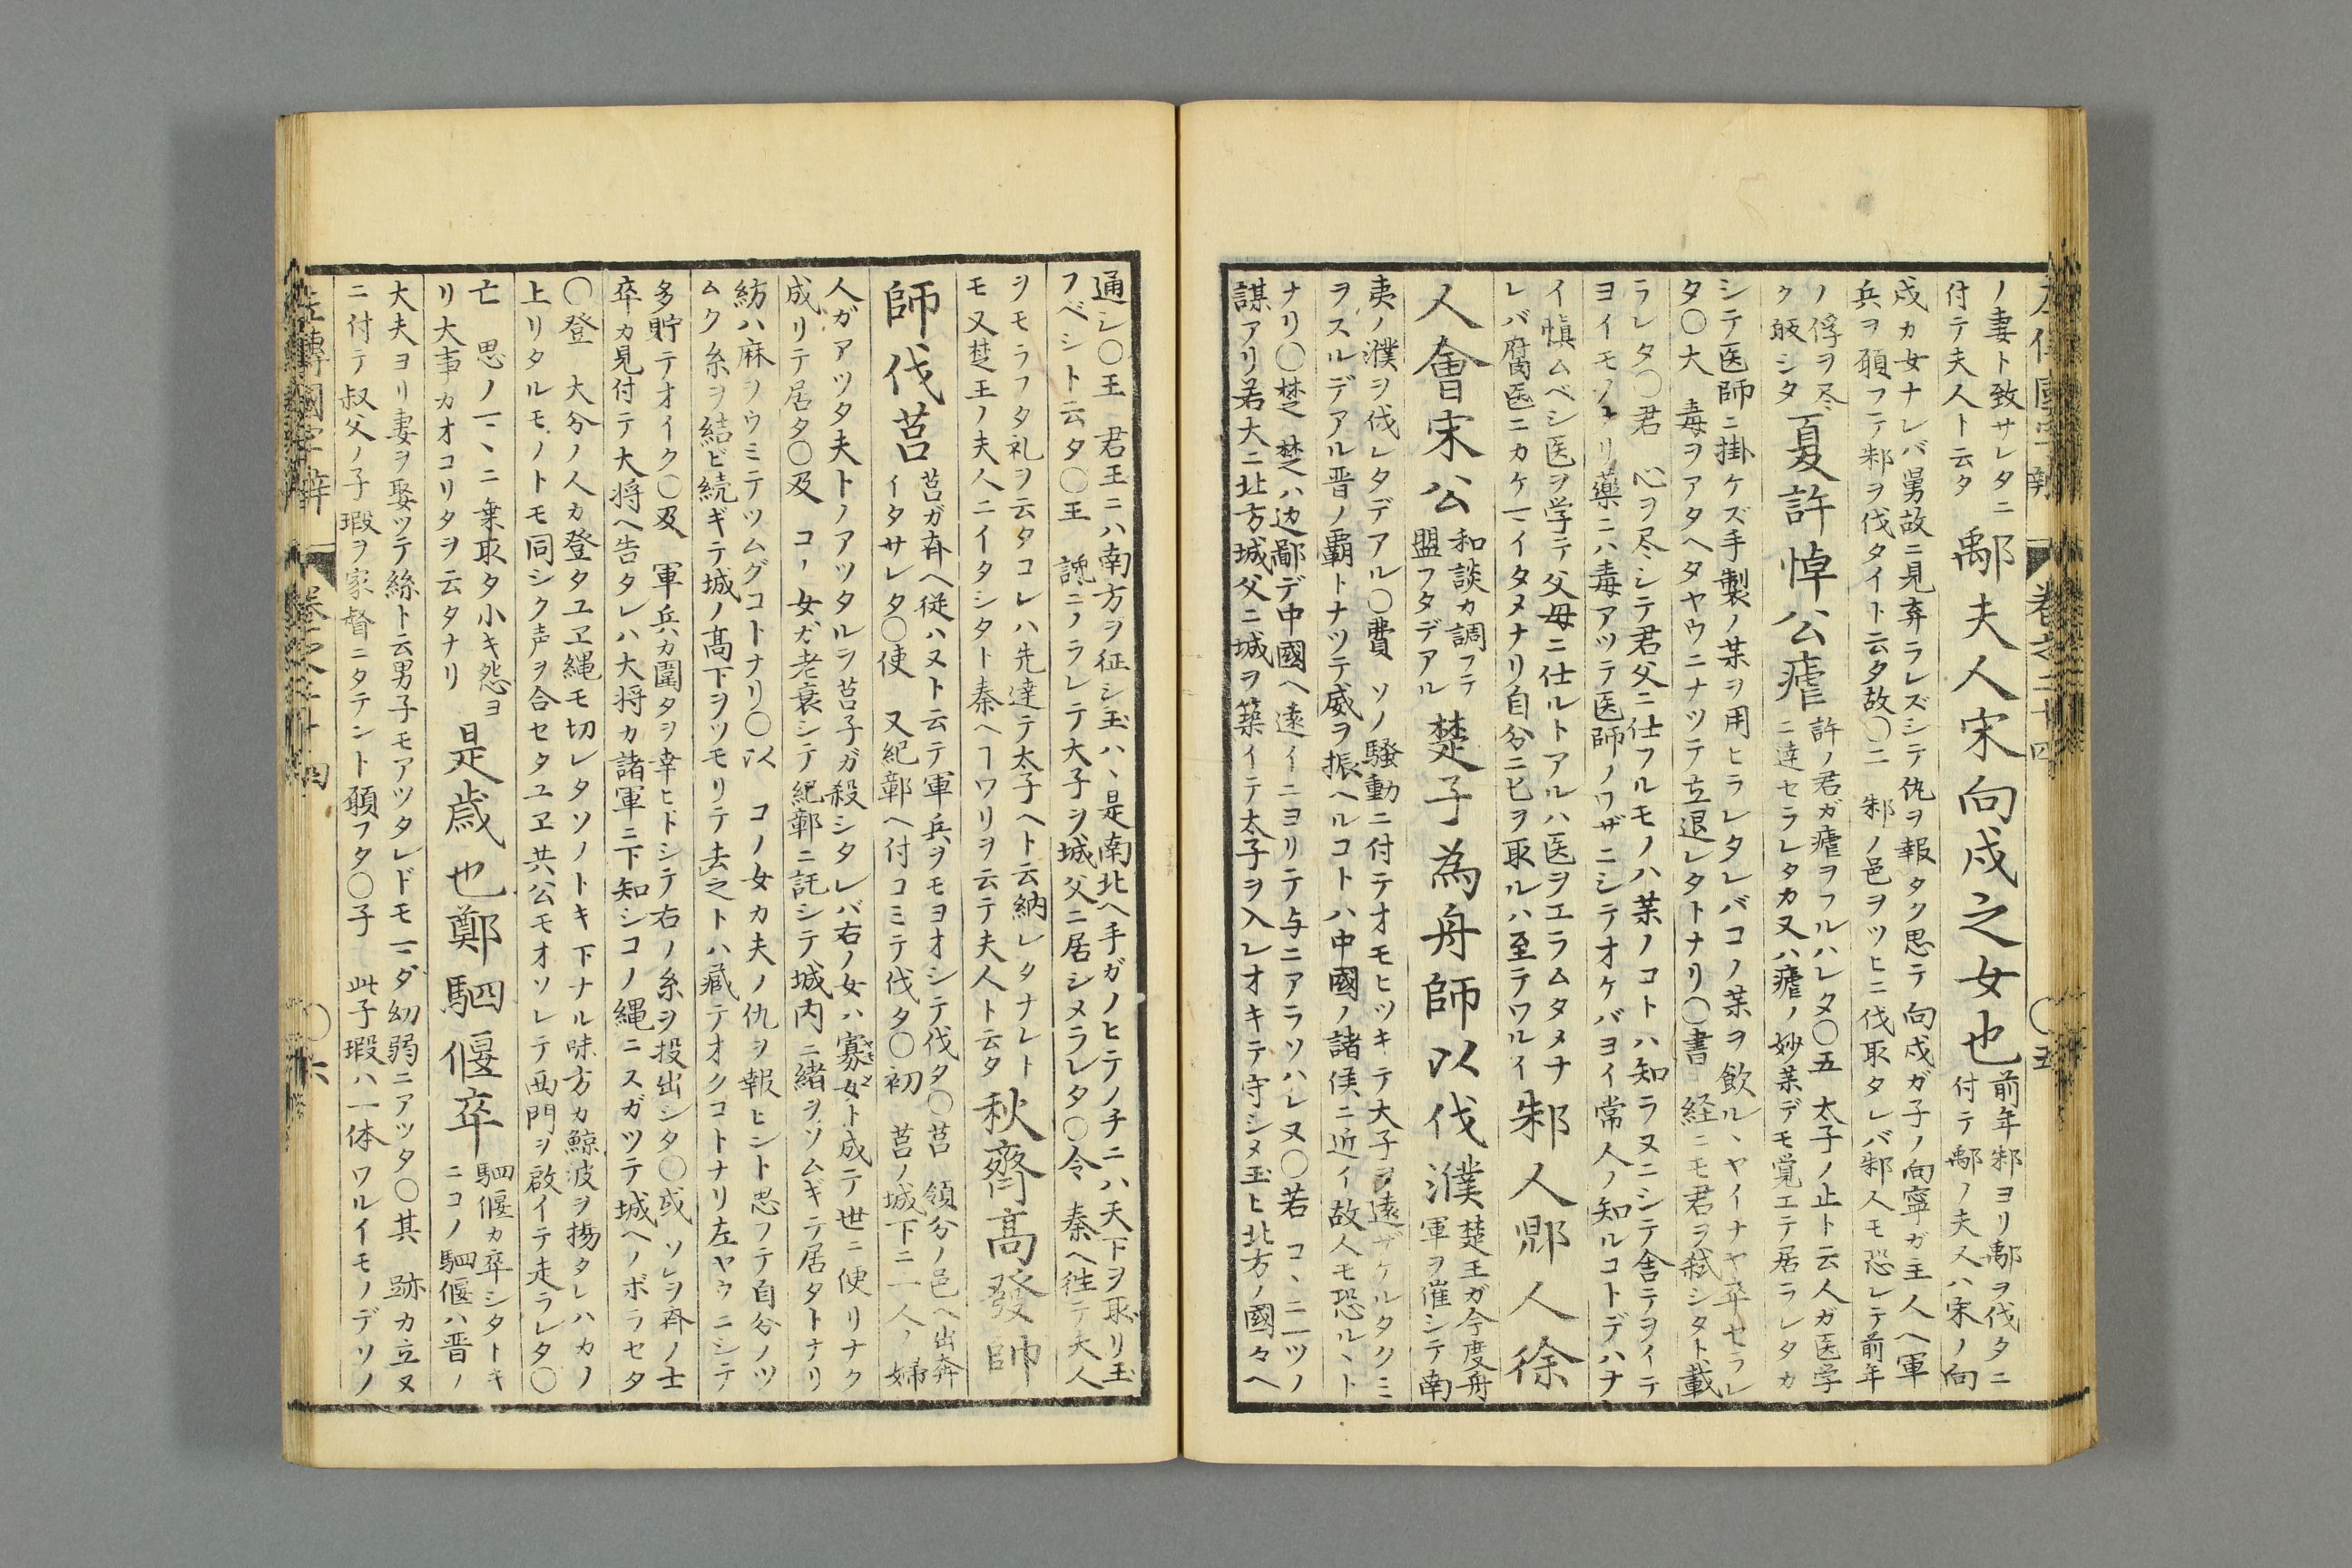 ノ妻ト致サレタニ
付テ夫人ト云タ
鄅夫人宋向戌之女也
前年邾ヨリ鄅ヲ伐タニ
付テ鄅ノ夫人ハ宋ノ向
戌カ女ナレバ舅故ニ見弃ラレズシテ仇ヲ報タク思テ向戌ガ子ノ向寧ガ主人ヘ軍
兵ヲ願フテ邾ヲ伐タイト云タ故〇二 邾ノ邑ヲツヒニ伐取タレバ邾人モ恐レテ前年
ノ俘ヲ尽
ク皈シタ
夏許悼公瘧
許ノ君ガ瘧ヲフルハレタ〇五 太子ノ止ト云人ガ医学
ニ達セラレタカ又ハ瘧ノ妙薬デモ覚エテ居ラレタカ
シテ医師ニ掛ケズ手製ノ薬ヲ用ヒラレタレバコノ薬ヲ飲ル、ヤイナヤ卒セラレ
タ〇大 毒ヲアタヘタヤウニナツテ立退レタトナリ〇書 経ニモ君ヲ弑シタト載
ラレタ〇君 心ヲ尽シテ君父ニ仕フルモノハ薬ノコトハ知ラヌニシテ舎テヲイテ
ヨイモノナリ薬ニハ毒アツテ医師ノワザニシテオケバヨイ常人ノ知ルコトデハナ
イ慎ムベシ医ヲ学テ父母ニ仕ルトアルハ医ヲエラムタメナ
レバ腐医ニカケマイタメナリ自分ニ匕ヲ取ルハ至テワルイ
邾人郳人徐
人會宋公
和談カ調フテ
盟フタデアル
楚子為舟師以伐濮
楚王ガ今度舟
軍ヲ催シテ南
夷ノ濮ヲ伐レタデアル〇費 ソノ騒動ニ付テオモヒツキテ大子ヲ遠ザケルタクミ
ヲスルデアル晋ノ覇トナツテ威ヲ振ヘルコトハ中國ノ諸侯ニ近イ故人モ恐ル、ト
ナリ〇楚 楚ハ辺鄙デ中國ヘ遠イニヨリテ与ニアラソハレヌ〇若 コヽニ一ツノ
謀アリ若大ニ北方城父ニ城ヲ築イテ太子ヲ入レオキテ守シメ玉ヒ北方ノ國々ヘ
通シ〇王 君王ニハ南方ヲ征シ玉ハ、是南北ヘ手ガノヒテノチニハ天下ヲ取リ玉
フベシト云タ〇王 讒ニノラレテ大子ヲ城父ニ居シメラレタ〇令 秦ヘ往テ夫人
ヲモラフタ礼ヲ云タコレハ先達テ太子ヘト云納レタナレト
モ又楚王ノ夫人ニイタシタト秦ヘコトワリヲ云テ夫人ト云タ
秋齊高發帥
師伐莒
莒ガ斉ヘ従ハヌト云テ軍兵ヲモヨオシテ伐タ〇莒 領分ノ邑ヘ出奔
イタサレタ〇使 又紀鄣ヘ付コミテ伐タ〇初 莒ノ城下ニ一人ノ婦
人ガアツタ夫トノアツタルヲ莒子ガ殺シタレバ右ノ女ハ寡女ト成テ世ニ便リナク
成リテ居タ〇及 コノ女ガ老衰シテ紀鄣ニ託シテ城内ニ緒ヲソムギテ居タトナリ
紡ハ麻ヲウミテツムグコトナリ〇以 コノ女カ夫ノ仇ヲ報ヒント思フテ自分ノツ
ムク糸ヲ結ビ続ギテ城ノ高下ヲツモリテ去之トハ蔵テオクコトナリ左ヤウニシテ
多貯テオイク〇及 軍兵カ圍タヲ幸ヒトシテ右ノ糸ヲ投出シタ〇或 ソレヲ斉ノ士
卒カ見付テ大将ヘ告タレハ大将カ諸軍ニ下知シコノ縄ニスガツテ城ヘノボラセタ
〇登 大分ノ人カ登タユヱ縄モ切レタソノトキ下ナル味方カ鯨波ヲ揚タレハカノ
上リタルモノトモ同シク声ヲ合セタユヱ共公モオソレテ西門ヲ啟イテ走ラレタ〇
亡 思ノマヽニ乗取タ小キ怨ヨ
リ大事カオコリタヲ云タナリ
是歳也鄭駟偃卒
駟偃カ卒シタトキ
ニコノ駟偃ハ晋ノ
大夫ヨリ妻ヲ娶ツテ絲ト云男子モアツタレドモマダ幼弱ニアツタ〇其 跡カ立ヌ
ニ付テ叔父ノ子瑕ヲ家督ニタテント願フタ〇子 此子瑕ハ一体ワルイモノデソノ